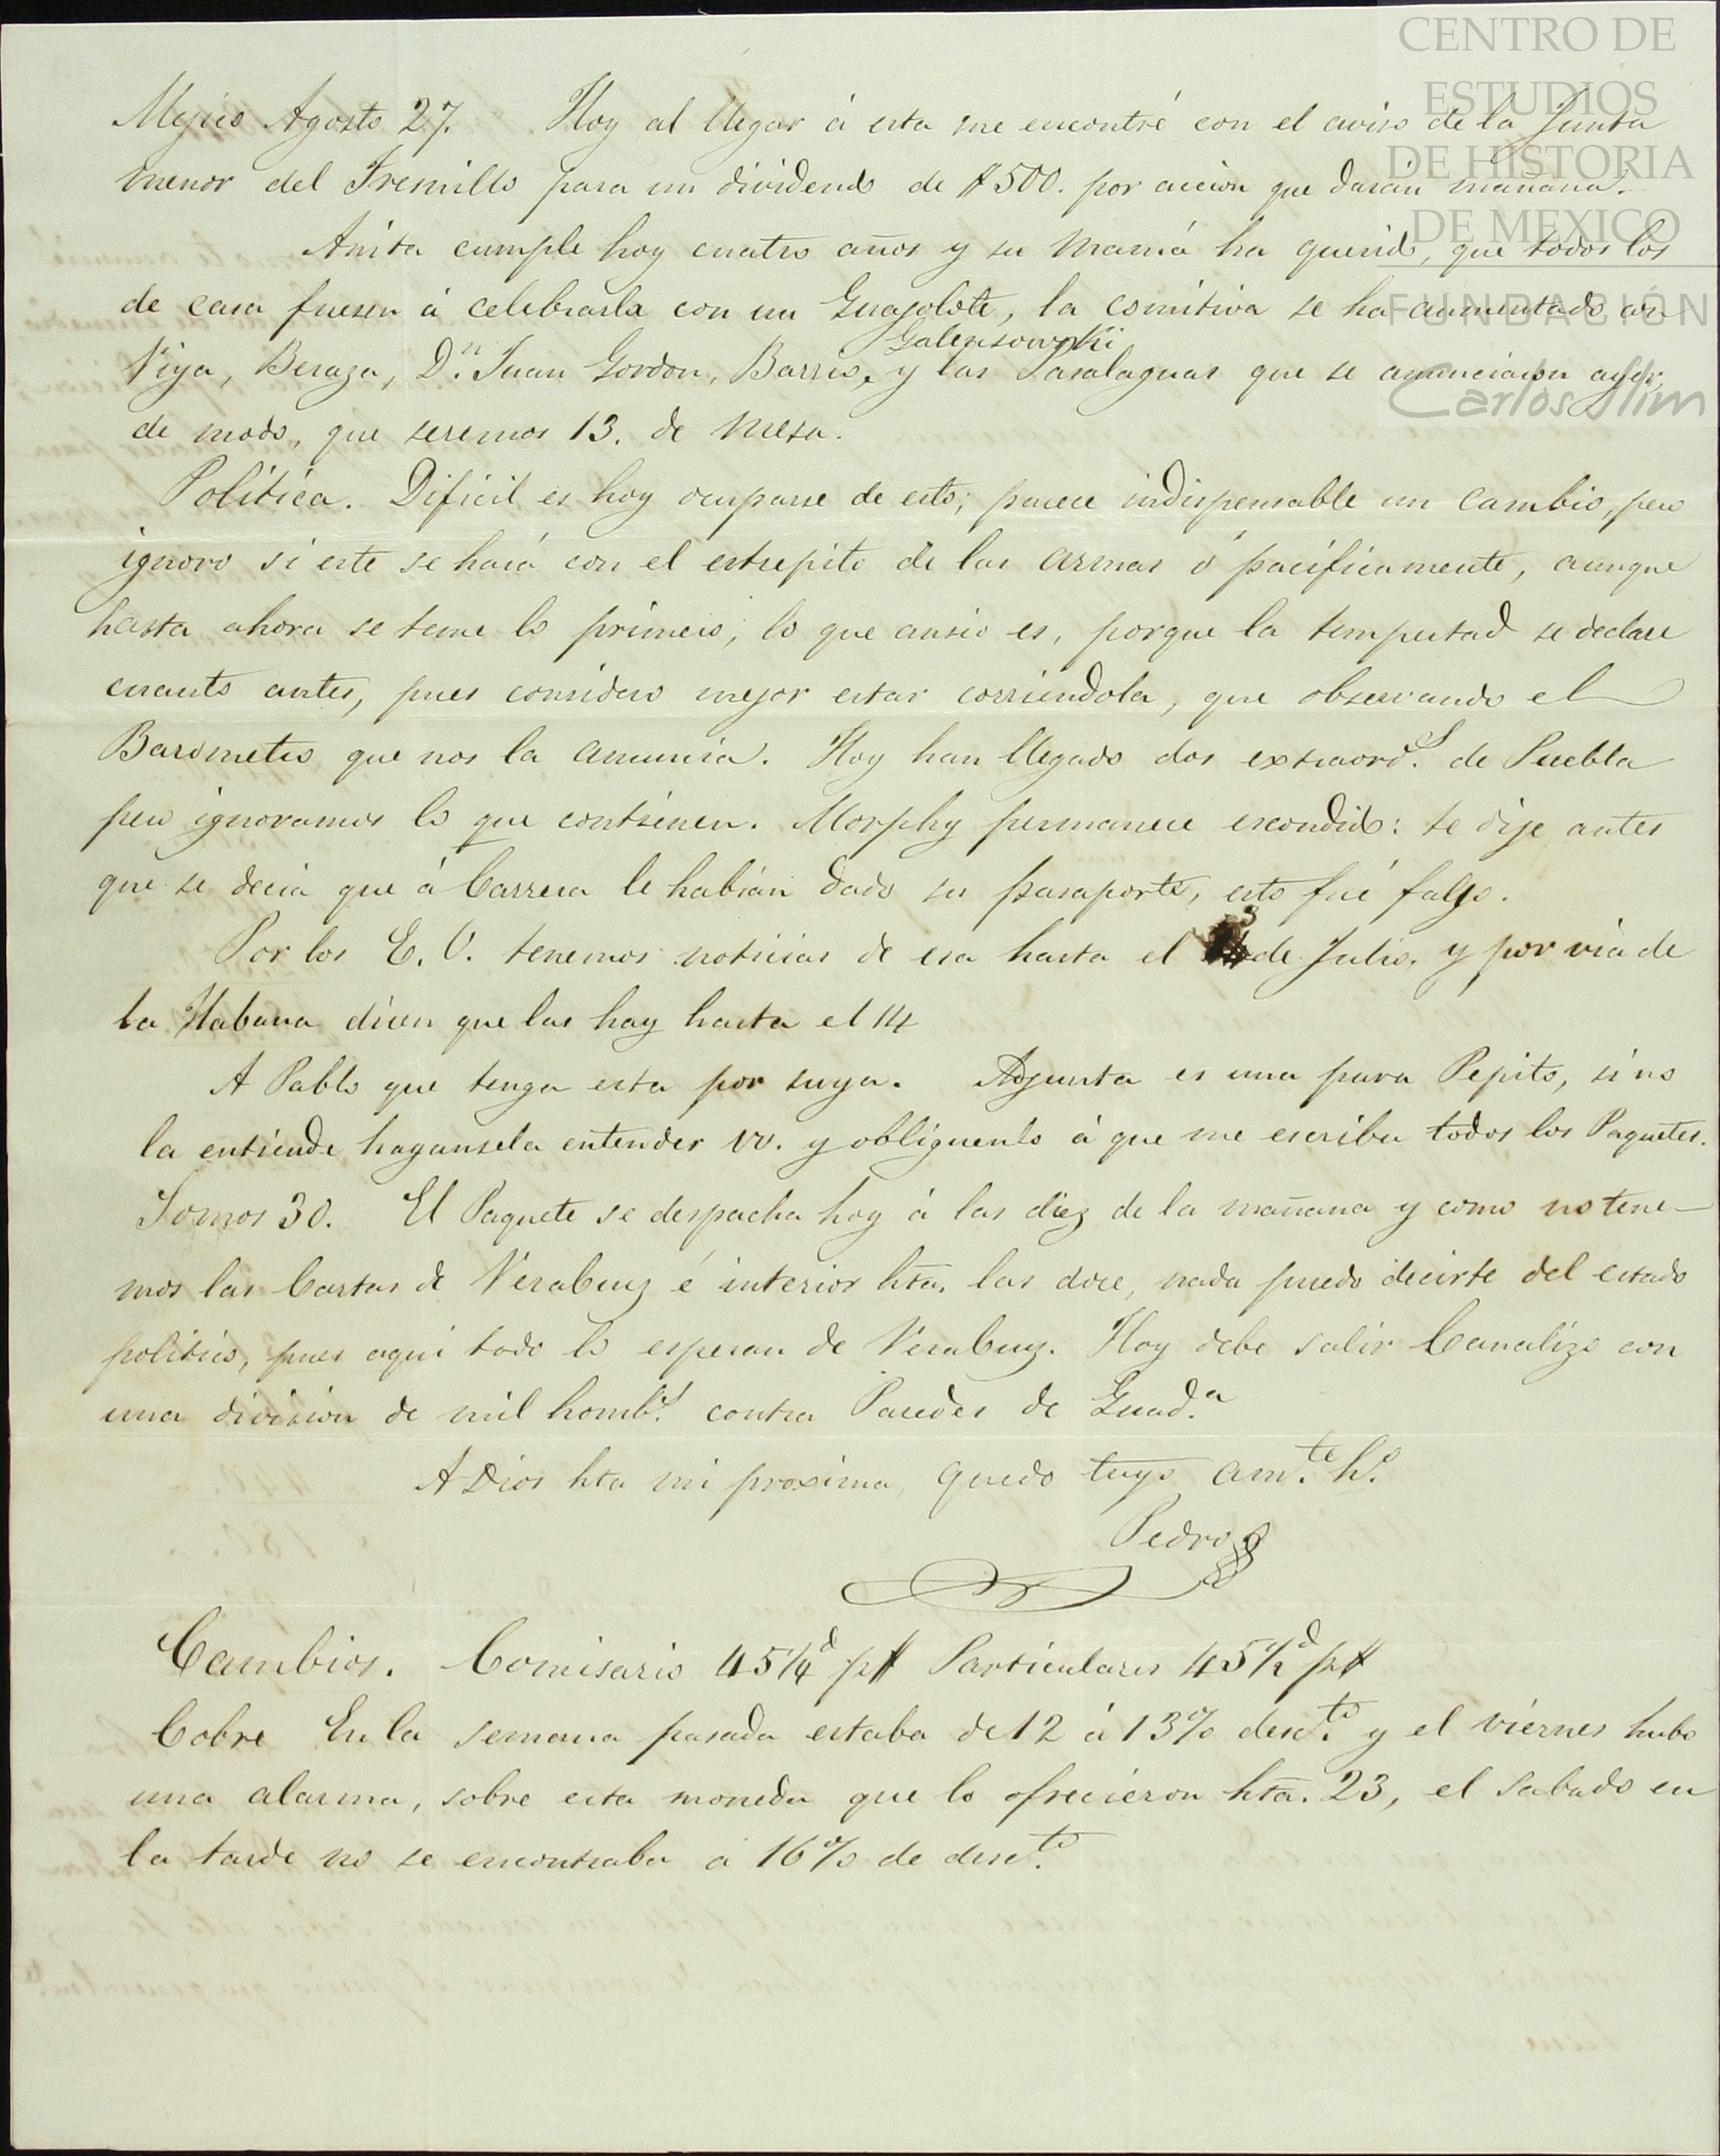 CENTRO DE
ESTUDIOS
DE HISTORIA
DE MEXICO
FUNDACIÓN
Carlos Slim
Mejico Agosto 27. Hoy al llegar á esta me encontré con el aviso de la Junta
menor del Fresnillo para un dividendo de $500. por accion que darán mañana.
Anita cumple hoy cuatro años y su Mamá ha querido, que todos los
de casa fuesen á celebrarla con un Guajolote, la comitiva se ha aumentado con
Galensowski
Viya, Beraza, Dn. Juan Gordon, Barrio, y las Pasalaguas que se anunciaron ayer,
de modo, que seremos 13. de Mesa.
Politica. Dificil es hoy ocuparse de esto; parece indispensable un Cambio, pero
ignoro si este se hará con el estrepito de las armas ó pacificamente, aunque
hasta ahora se teme lo primero; lo que ansio es, porque la tempestad se declare
cuanto antes, pues considero mejor estar corriendola, que observando el
Barometro que nos la anuncia. Hoy han llegado dos extraord.s de Puebla
pero ignoramos lo que contienen. Morphy permanece escondido: te dije antes
que se decia que á Carrera le habián dado su pasaporte, esto fué falso.
Por los E. U. tenemos noticias de esa hasta el 3 de Julio. y por via de
la Habana dicen que las hay hasta el 14
A Pablo que tenga esta por suya. Adjunta es una para Pepito, si no
la entiende hagansela entender VV. y obliguenlo á que me escriba todos los Paquetes.
Somos 30. El Paquete se despacha hoy á las diez de la mañana y como no tene-
mos las Cartas de VeraCruz é interior hta. las doce, nada puedo decirte del estado
politico, pues aqui todo lo esperan de VeraCruz. Hoy debe salir Canalizo con
una division de mil homb.s contra Paredes de Guad.a
A Dios hta mi proxima, quedo tuyo am.te h.o
Pedro
Cambios. Comisario 45 1/4 d p$ Particulares 45 1/2 d p$
Cobre En la semana pasada estaba de 12 á 13% desc.to y el viernes hubo
una alarma, sobre esta moneda que lo ofrecieron hta. 23, el Sabado en
la tarde no se encontraba á 16% de desc.to